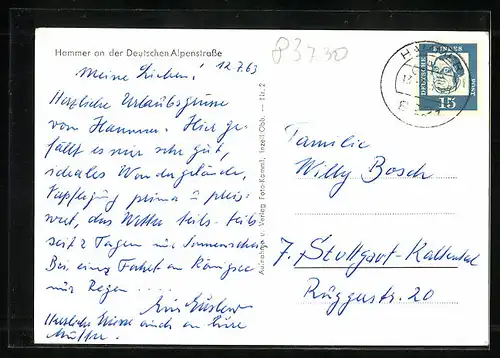 Hammer an der Deutschen Alpenstraße
83730
12.7.63
Meine Lieben!
Herzliche Urlaubsgrüsse
von Hammer. Hier ge-
fällt es mir sehr gut,
ideales Wandergelände,
Verpflegung prima u. preis-
wert, das Wetter teils-teils
seit 2 Tagen nur Sonnenschein
Bei einer Fahrt an Königsee
nur Regen ....
Herzliche Grüsse auch an Eure
Mutter.
Aufnahme u. Verlag Foto-Kamml, Inzell Obb. Nr. 2
DEUTSCHE
BUNDES
POST
15
Familie
Willy Bosch
7. Stuttgart-Kaltental
Rüggestr. 20